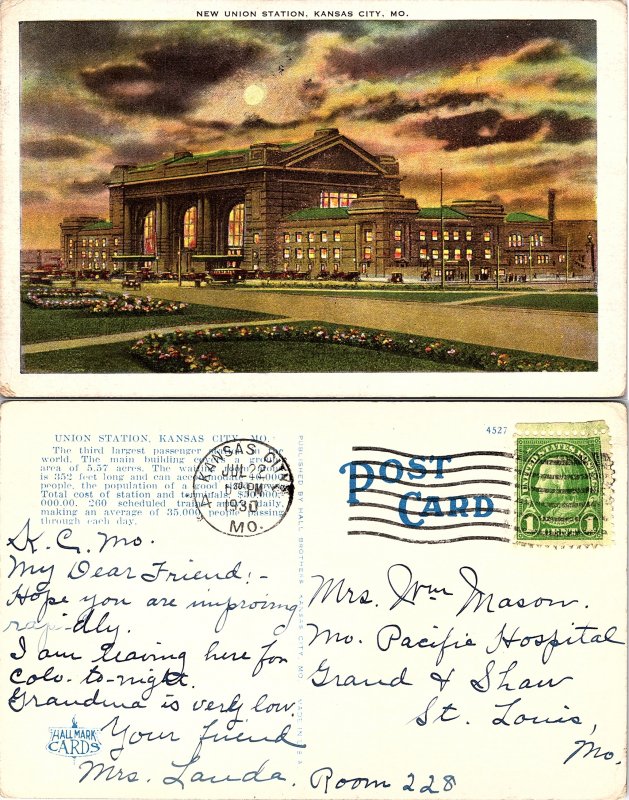 NEW UNION STATION, KANSAS CITY, MO.
UNION STATION, KANSAS CITY, MO.
The third largest passenger in the
world. The main building covers a ground
area of 5.57 acres. The waiting
is 352 feet long and can accommodate
people, the population of a good
Total cost of station and
000.00. 260 scheduled trains daily,
making an average of 35,000 people passing
through each day.
4527
KANSAS CITY
JUL 22
PM
1930
MO.
POST
CARD
UNITED STATES POSTAGE
1 1
PUBLISHED BY HALL BROTHERS, KANSAS CITY, MO. MADE IN U S A
K. C. Mo.
My Dear Friend:-
Hope you are improving
rapidly.
I am leaving here for
Colo. to-night.
Grandma is very low.
Your friend
Mrs. Landa.
HALLMARK
CARDS
Mrs. Wm Mason.
Mo. Pacific Hospital
Grand & Shaw
St. Louis,
Mo.
Room 228